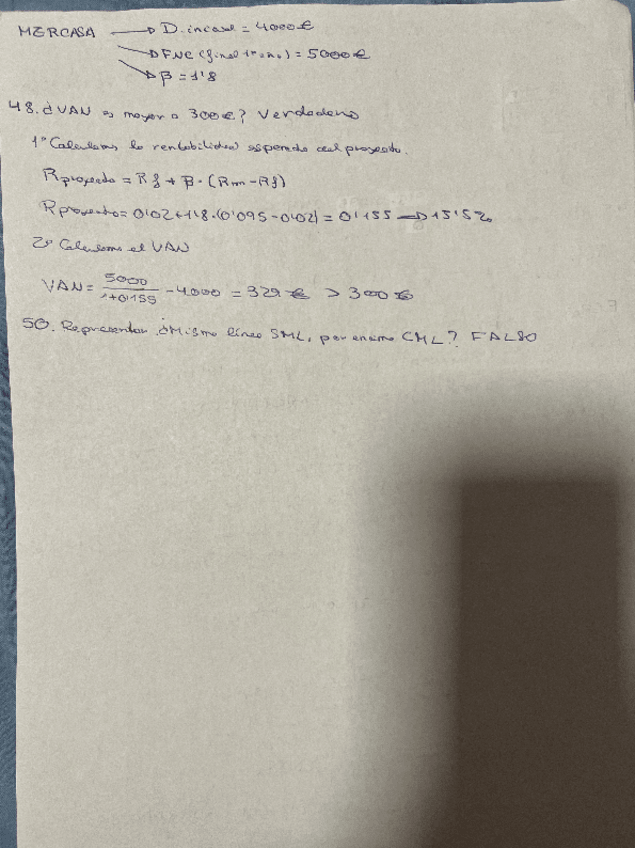 MERCASA → D. inicial = 4000€
→ FNC (final 1er año) = 5000€
→ β = 1'8
48. ¿VAN es mayor a 300€? Verdadero
1º Calculamos la rentabilidad esperada del proyecto.
Rproyecto = Rf + β · (Rm - Rf)
Rproyecto = 0'02 + 1'8 · (0'095 - 0'02) = 0'155 → 15'5%
2º Calculamos el VAN
VAN = 5000 / 1+0'155 - 4000 = 329 € > 300 €
50. Representan ¿Misma línea SML, por encima CML? FALSO